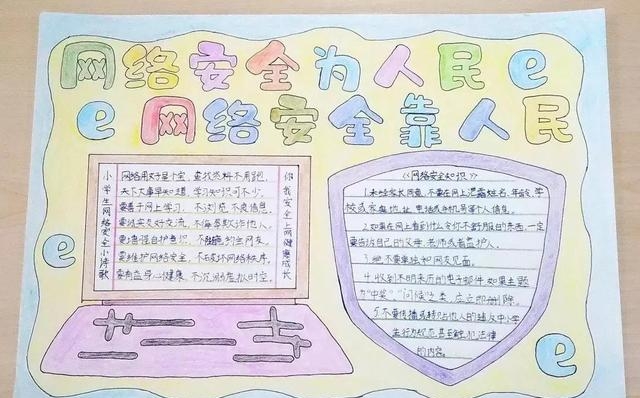 网络安全为人民e
e网络安全靠人民
小学生网络安全小诗歌
网络用好是个宝，查找资料不用跑。
天下大事早知道，学习知识可不少。
要善于网上学习，不浏览不良信息。
要诚实友好交流，不侮辱欺诈他人。
要增强自护意识，不随意约会网友。
要维护网络安全，不破坏网络秩序。
要有益身心健康，不沉溺虚拟时空。
你我安全上网健康成长
《网络安全知识》
1.未经家长同意，不要在网上泄露姓名、年龄、学
校或家庭地址、电话或手机号等个人信息。
2.如果在网上看到什么令你不舒服的东西，一定
要告诉自己的父母、老师或者监护人。
3.绝不要单独和网友见面。
4.收到不明来历的电子邮件，如果主题
为"中奖""问候"之类，应立即删除。
5.不要传播或转贴他人的违反中小学
生行为规范甚至触犯法律
的内容。
e
e
e